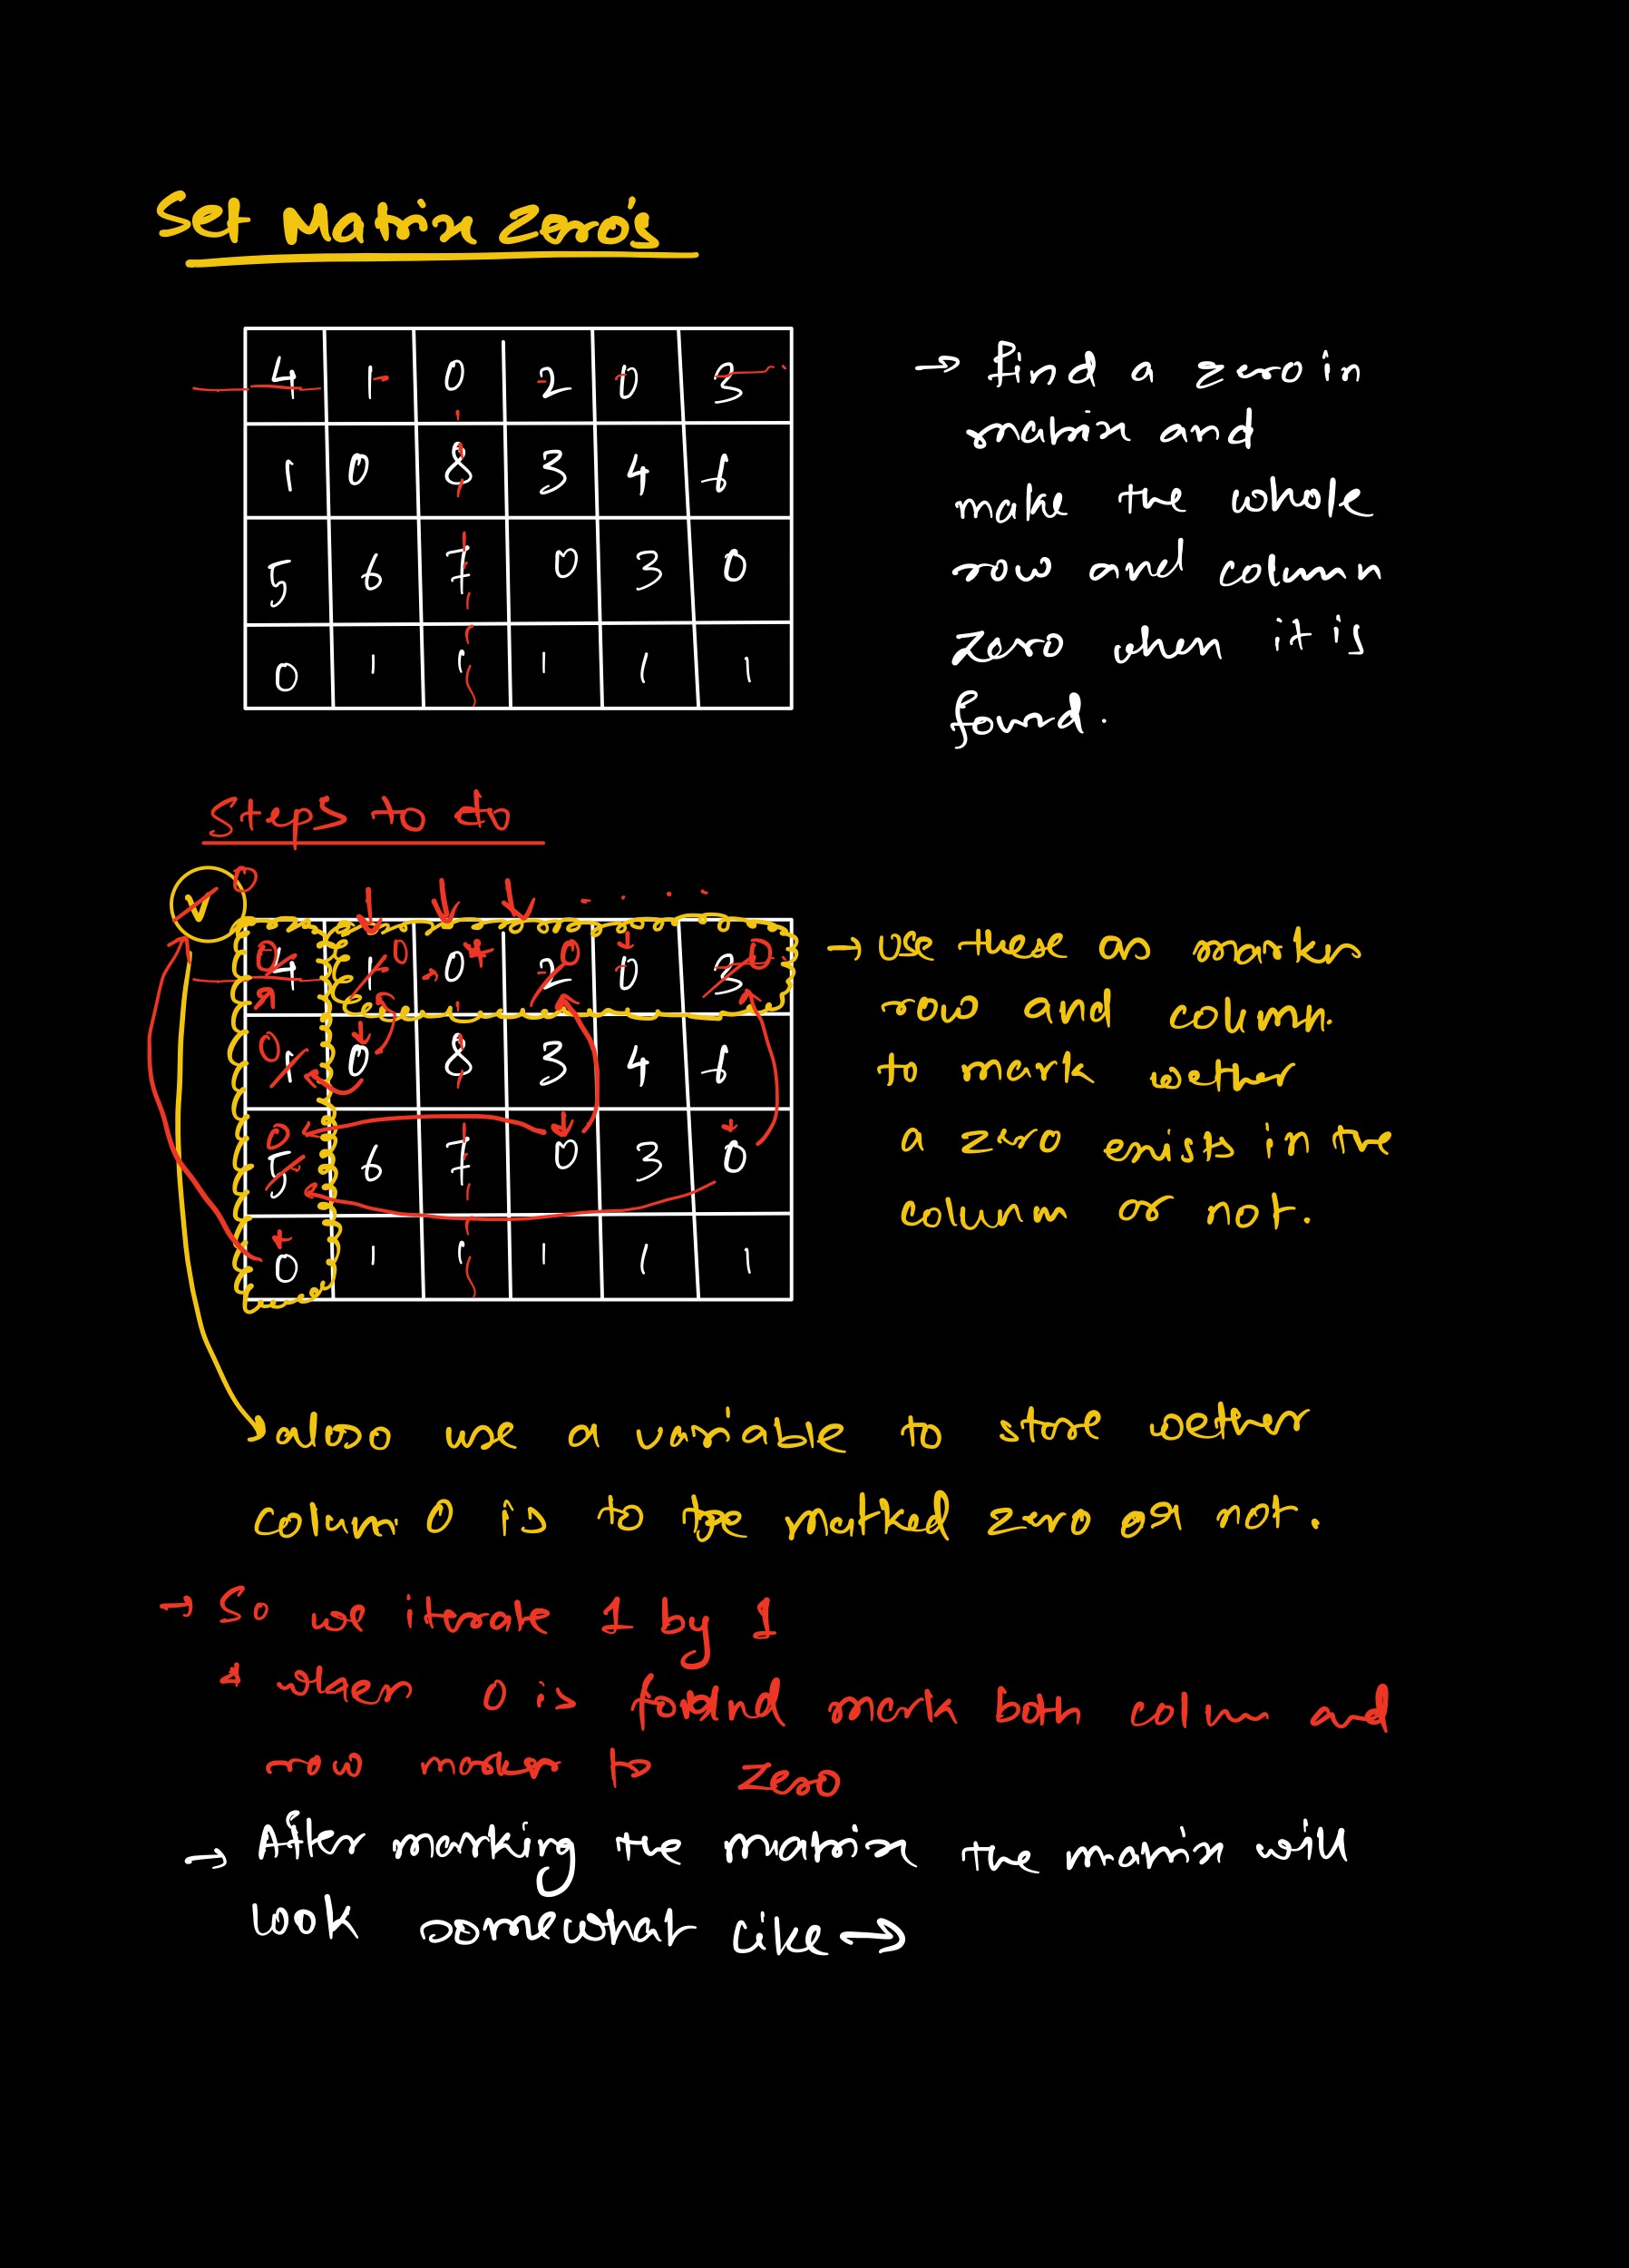 Set Matrix Zero's
4 1 0 2 0 3
1 0 8 3 4 6
5 6 7 0 3 0
0 1 1 1 1 1
→ find a zero in
matrix and
make the whole
row and column
zero when it is
found.
Steps to do
V 0
0 4 1 0 0 2 0 0 3 0
0 1 0 8 3 4 6
0
5 6 7 0 3 0
0 1 1 1 1 1
→ use these as markers
row and column.
to mark wether
a zero exists in the
column or not.
also use a variable to store wether
colum 0 is to be marked zero or not.
→ So we iterate 1 by 1
when 0 is found mark both colum and
row marker to zero
→ After marking the matrix the matrix will
look somewhat like →